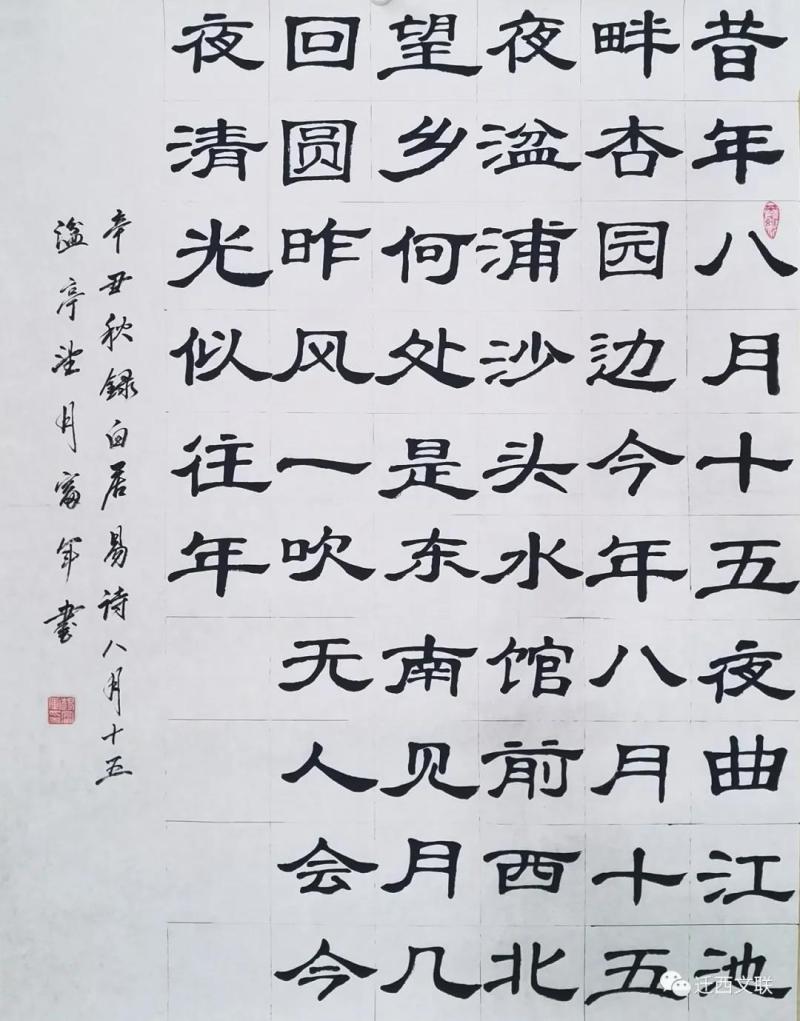 昔年八月十五夜曲江池
畔杏园边今年八月十五
夜湓浦沙头水馆前西北
望乡何处是东南见月几
回圆昨风一吹无人会今
夜清光似往年
辛丑秋録白居易诗八月十五
湓亭望月富年书
迁西文联